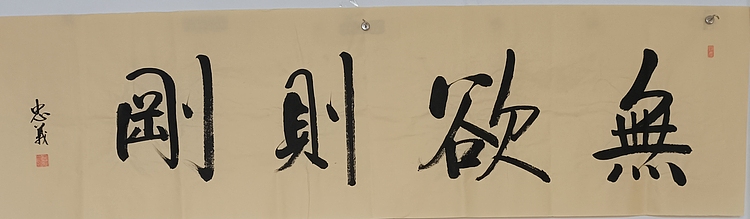 無欲則剛
忠義